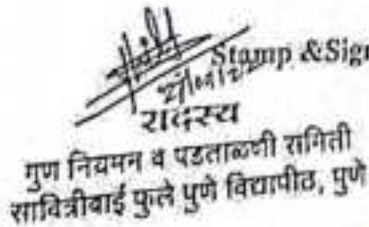 Stamp &Sign
सदस्य
गुण नियमन व पडताळणी समिती
सावित्रीबाई फुले पुणे विद्यापीठ, पुणे